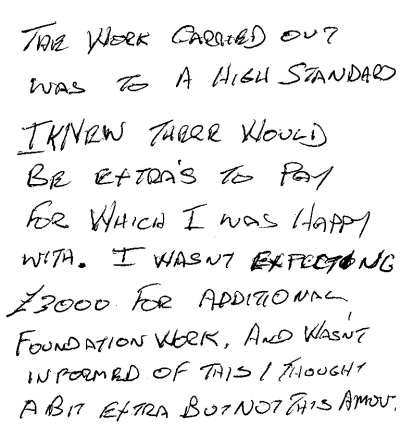 THE WORK CARRIED OUT
WAS TO A HIGH STANDARD
I KNEW THERE WOULD
BE EXTRA'S TO PAY
FOR WHICH I WAS HAPPY
WITH. I WASNT EXPECTING
£3000 FOR ADDITIONAL
FOUNDATION WORK, AND WASN'T
INFORMED OF THIS I THOUGHT
A BIT EXTRA BUT NOT THIS AMOUT.